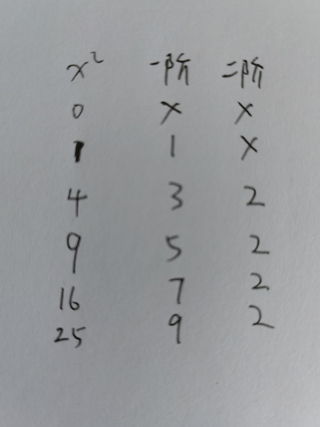 x² 一阶 二阶
0 x x
1 1 x
4 3 2
9 5 2
16 7 2
25 9 2